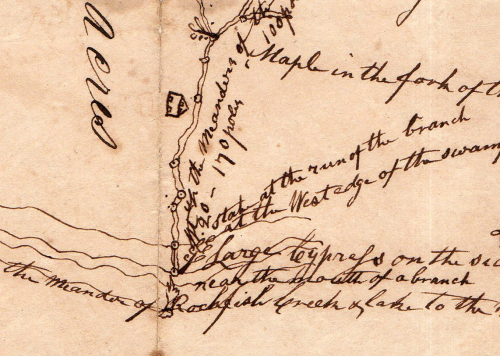 Acres
100 po
Maple in the fork of th
the Meanders of the
170 poles
stake at the run of the branch
at the West edge of the swamp
Large Cypress on the si
near the mouth of a branch
the meander of Rockfish Creek & lake to the